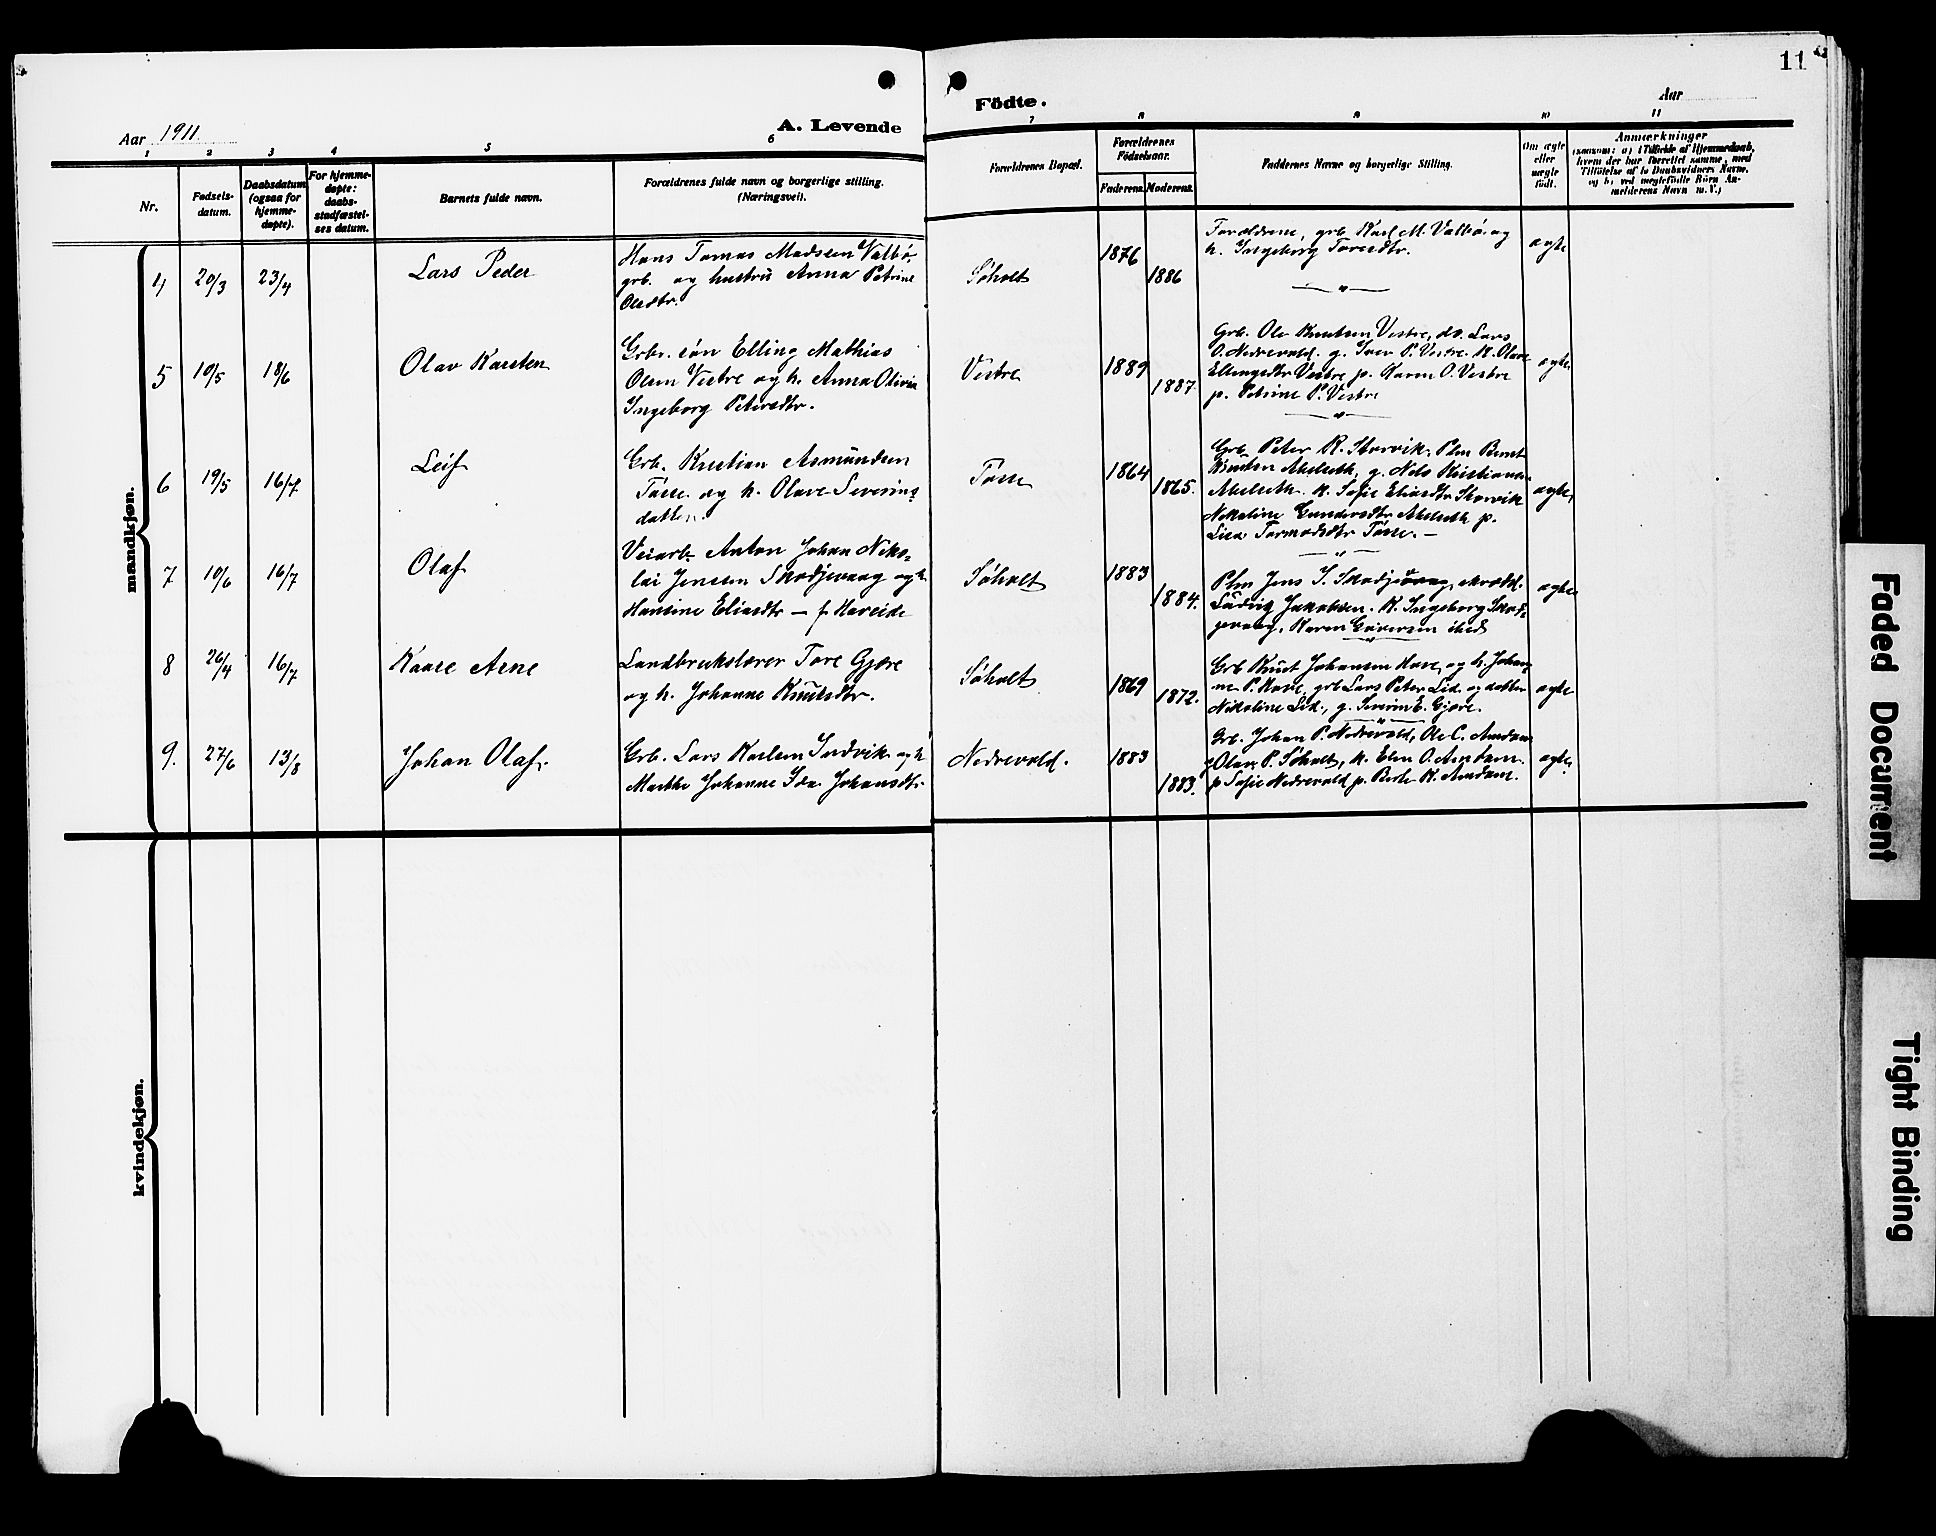 11
Aar 1911.
A. Levende
Födte.
Aar
1 2 3 4 5 6 7 8 9 10 11
Nr.
Fødsels-
datum.
Daabsdatum
(ogsaa for
hjemme-
døpte).
For hjemme-
døpte:
daabs-
stadfæstel-
ses datum.
Barnets fulde navn.
Forældrenes fulde navn og borgerlige stilling.
(Næringsvei).
Forældrenes Bopæl.
Forældrenes
Födselsaar.
Faderens. Moderens.
Faddernes Navne og borgerlige Stilling.
Om ægte
eller
uægte
födt.
Anmærkninger
(saasom: a) i Tilfælde af Hjemmedaab,
hvem der har forrettet samme, med
Tilföielse af to Daabsvidners Navne.
og b) ved uægtefödte Börn An-
melderens Navn m. V.)
mandkjøn.
4 20/3 23/4 Lars Peder
Hans Tomas Madssen Valbö,
grb. og hustru Anna Petrine
Olsdtr.
Søholt 1876 1886
Forældrene, grb. Karl M. Valbö og
h. Ingeborg Toresdtr.
ægte
5 10/5 18/6 Olav Karsten
Grbr. søn Elling Mathias
Olsen Vestre og h. Anna Olivia
Ingeborg Petersdtr.
Vestre 1889 1887.
Grb. Ole Knutsen Vestre, do. Lars
O. Nedrevold. g. Iver P. Vestre. K. Olave
Ellingsdtr Vestre p. Karen O. Vestre
p. Petrine P. Vestre
ægte.
6 19/5 16/7 Leif
Grb. Kristian Asmundsen
Tösse og h. Olave Severins
datter.
Tösse 1864 1865.
Grb. Peter K. Storvik, Plm Bernt
Knutsen Akslseth, g. Nils Kristiansen
Akslseth. K. Sofie Eliasdtr Storvik
Nikoline Gundersdtr Akslseth p.
Lisa Tormodsdtr Tösse. —
ægte,
7 10/6 16/7 Olaf
Veiarb. Anton Johan Niko-
lai Jenssen Skodjevaag og h.
Hansine Eliasdtr — f Hareide
Søholt 1883 1884.
Plm Jens S. Skodjevaag, skrædd.
Ludvig Jakobsen. K. Ingeborg Skod-
jevaag, Karen Griversen ibid
ægte
8 26/4 16/7 Kaare Arne
Landbrukslærer Tore Gjøre
og h. Johanne Knutsdtr.
Søholt 1869 1872.
Grb Knut Johansen Hove, og h. Johan
ne P. Hove, grb Lars Peter Lid og datter
Nikoline Lid, g. Severin E. Gjøre.
ægte
9. 27/6 13/8 Johan Olaf.
Grb. Lars Karlsen Indvik og h
Marthe Johanne Ida Johansdtr
Nedrevold. 1883 1883.
Grb. Johan P. Nedrevold, Ole C. Amdam
g Olav P. Søholt, K. Elen O. Amdam.
p Sofie Nedrevold p. Berte K. Amdam.
ægte.
kvindekjøn.
Faded Document
Tight Binding